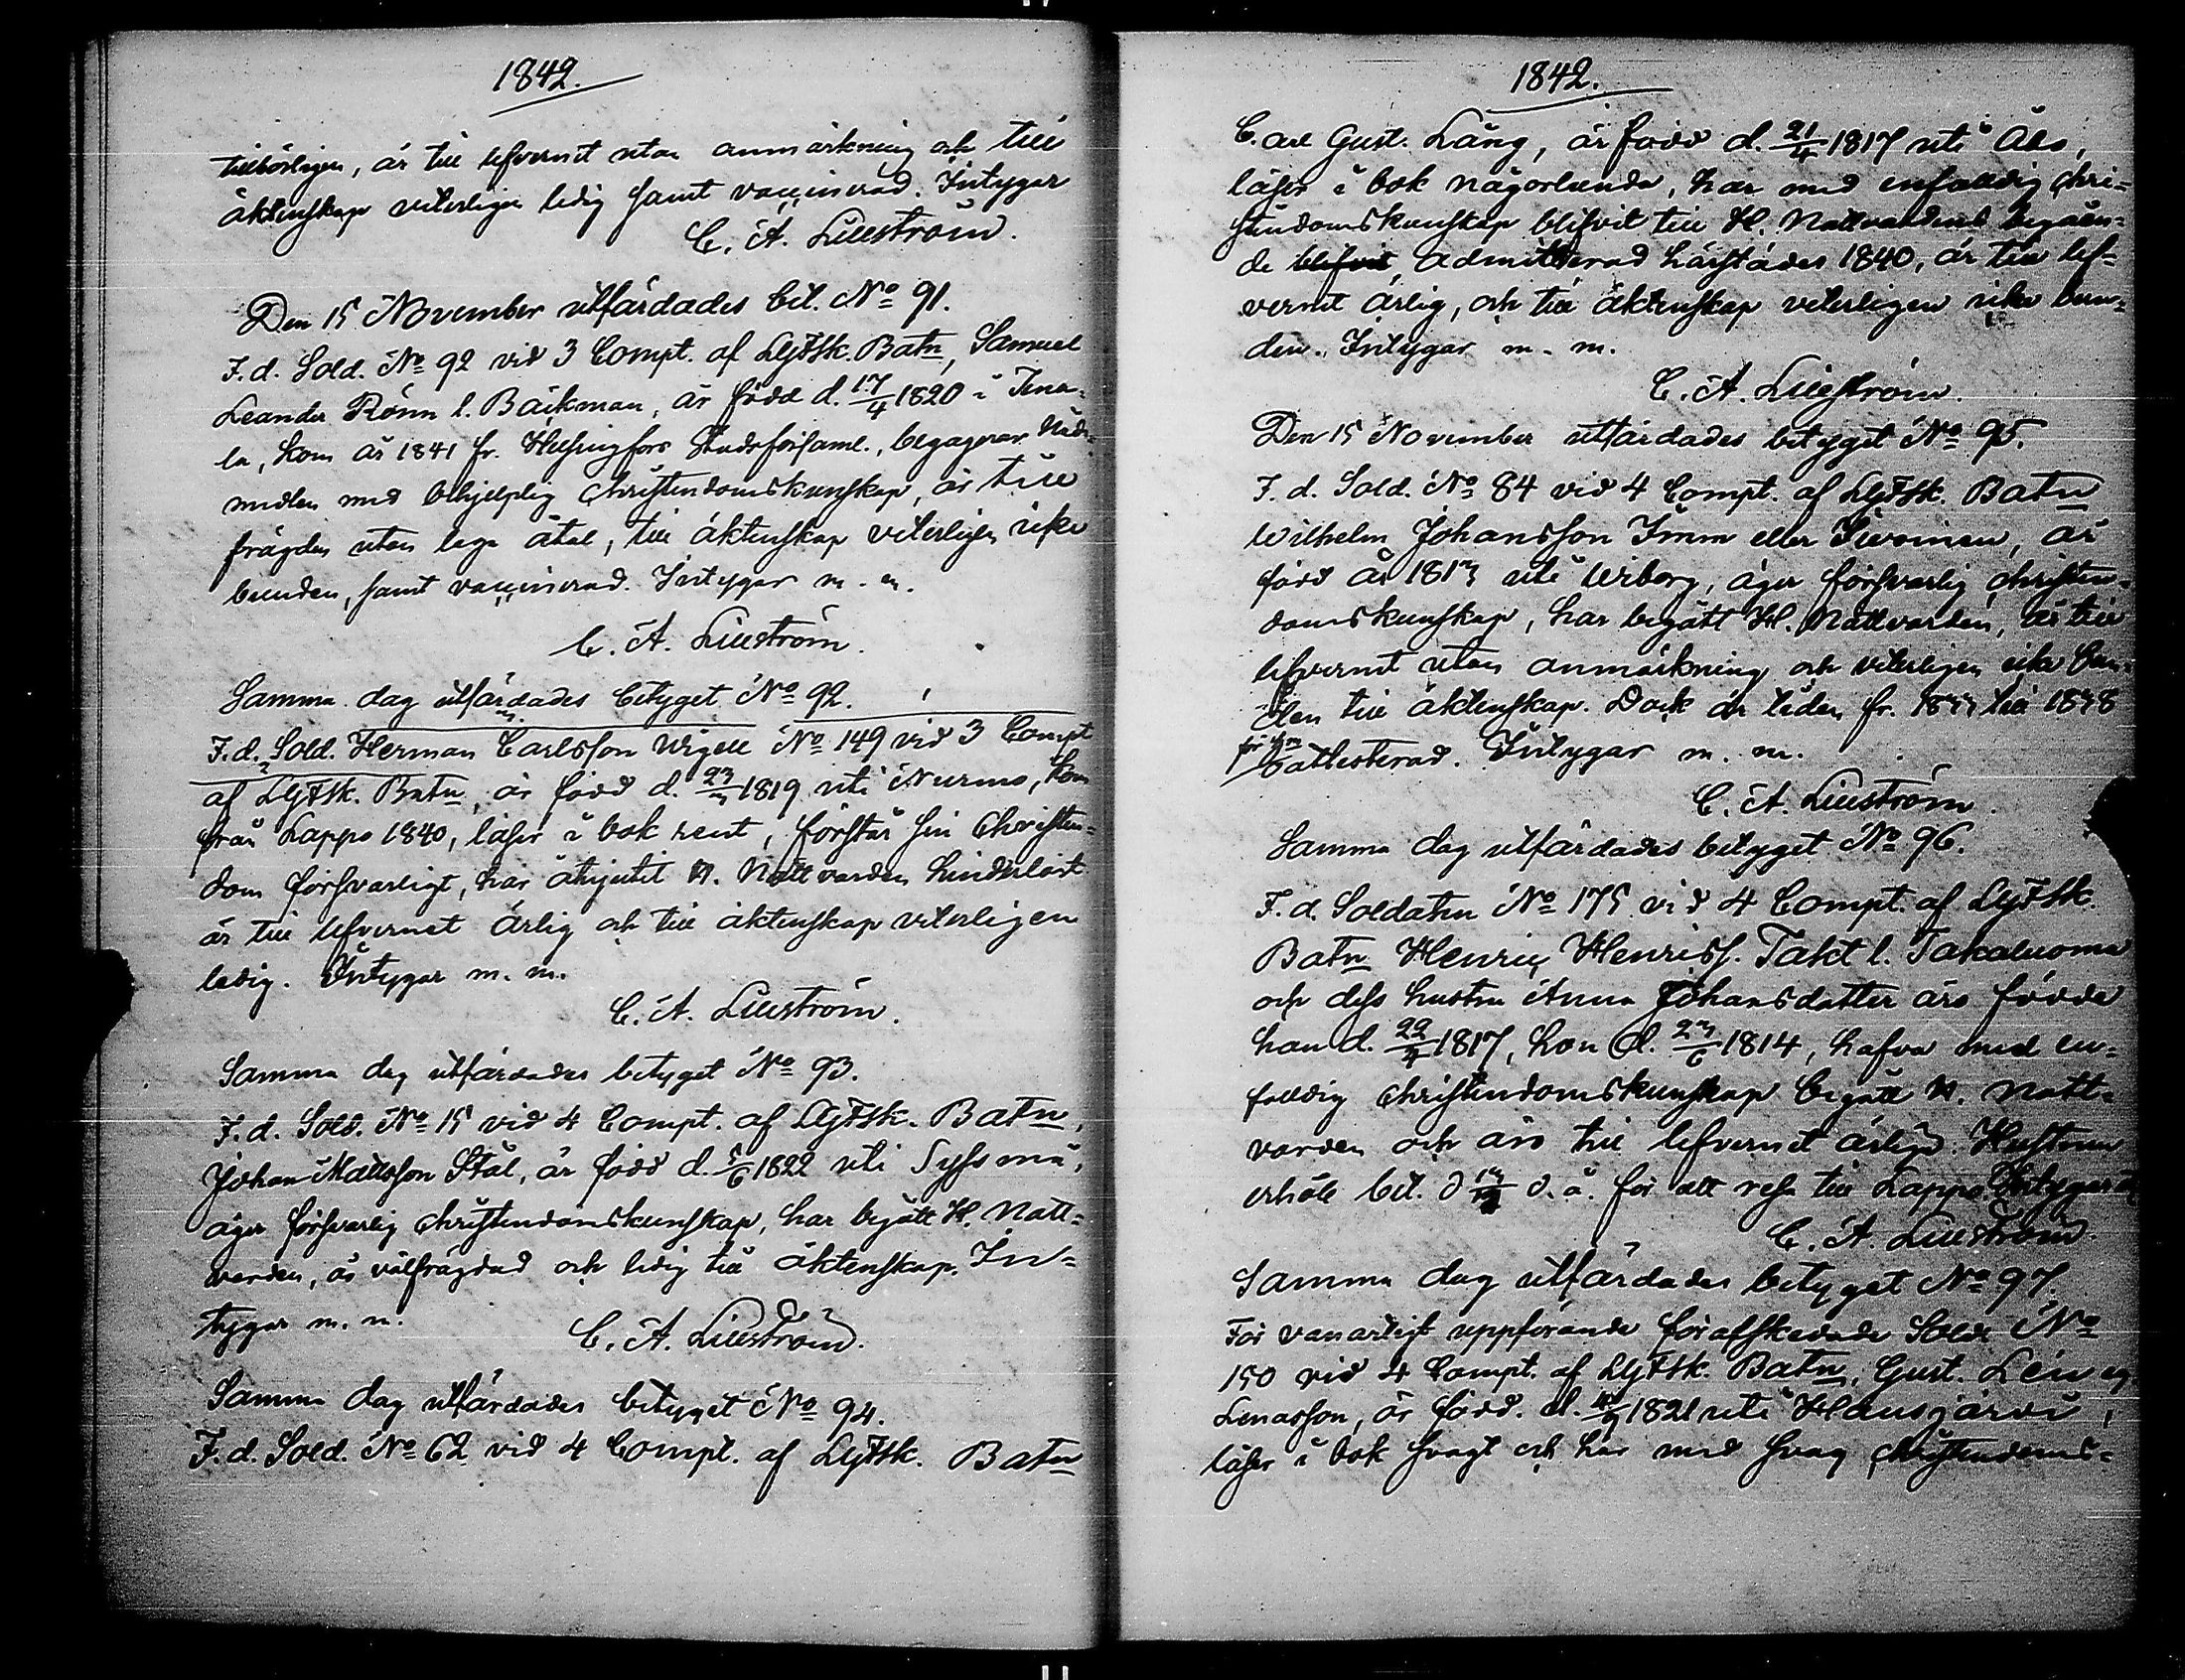 1842.
tillbörligen, är till lefvernet utan anmärkning och till
äktenskap veterligen ledig samt vaccinerad. Intygar
C. A. Lillström.
Den 15 November utfärdades bet. No 91.
F. d. Sold. No 92 vid 3 Compt. af LgFsk. Batn, Samuel
Leander Rönn l. Bäckman, är född d. 17/4 1820 i Tena-
la, kom år 1841 fr. Helsingfors Stadsförsaml., begagnar Nåde-
medlen med behjelplig Christendomskunskap, är till
frägden utan laga åtal, till äktenskap veterligen icke
bunden, samt vaccinerad. Intygar m. m.
C. A. Lillström.
Samma dag utfärdades betyget No 92.
F. d. Sold. Herman Carlsson Wigell No 149 vid 3 Compt
af LgFsk. Batn, är född d. 23/3 1819 uti Nurmo, kom
från Lappo 1840, läser i bok rent, förstår sin Christen-
dom försvarligt, har åtnjutit H. Nattvarden hinderlöst
är till lefvernet ärlig och till äktenskap veterligen
ledig. Intygar m. m.
C. A. Lillström.
Samma dag utfärdades betyget No 93.
F. d. Sold. No 15 vid 4 Compt. af LgFsk. Batn,
Johan Mattsson Stål, är född d. 5/6 1822 uti Sysmä,
äger försvarlig Christendomskunskap, har begått H. Natt-
varden, är välfrägdad och ledig till äktenskap. In-
tygar m. m.
C. A. Lillström.
Samma dag utfärdades betyget No 94.
F. d. Sold. No 62 vid 4 Compt. af LgFsk. Batn
1842.
Carl Gust. Lång, är född d. 21/4 1817 uti Åbo,
läser i bok någorlunda, har med enfaldig Chri-
stendomskunskap blifvit till H. Nattvardens begåen-
de blifvit, admitterad härstädes 1840, är till lef-
vernet ärlig, och till äktenskap veterligen icke bun-
den. Intygar m. m.
C. A. Lillström.
Den 15 November utfärdades betyget No 95.
F. d. Sold. No 84 vid 4 Compt. af LgFsk. Batn
Wilhelm Johansson Imm eller Siwoinen, är
född år 1813 uti Wiborg, äger försvarlig Christen-
domskunskap, har begått H. Nattvarden, är till
lefvernet utan anmärkning och veterligen icke bun-
den till äktenskap. Dock är tiden fr. 1833 till 1838
för honom oattesterad. Intygar m. m.
C. A. Lillström.
Samma dag utfärdades betyget No 96.
F. d. Soldaten No 175 vid 4 Compt. af LgFsk
Batn Henric Henrics. Takt l. Takaluoma
och dess hustru Anna Johansdotter äro födde
han d. 22/4 1817, hon d. 23/6 1814, hafva med en-
faldig Christendomskunskap begått H. Natt-
varden och äro till lefvernet ärlige. Hustrun
erhöll bet. d. å. för att resa till Lappo. Intygar m
C. A. Lillström.
Samma dag utfärdades betyget No 97.
För vanartigt uppförande förafskedade Sold. No
150 vid 4 Compt. af LgFsk. Batn, Gust. Léneg
Lenasson, är född. d. 1821 uti Hausjärvi,
läser i bok svagt och har med svag Christendoms-